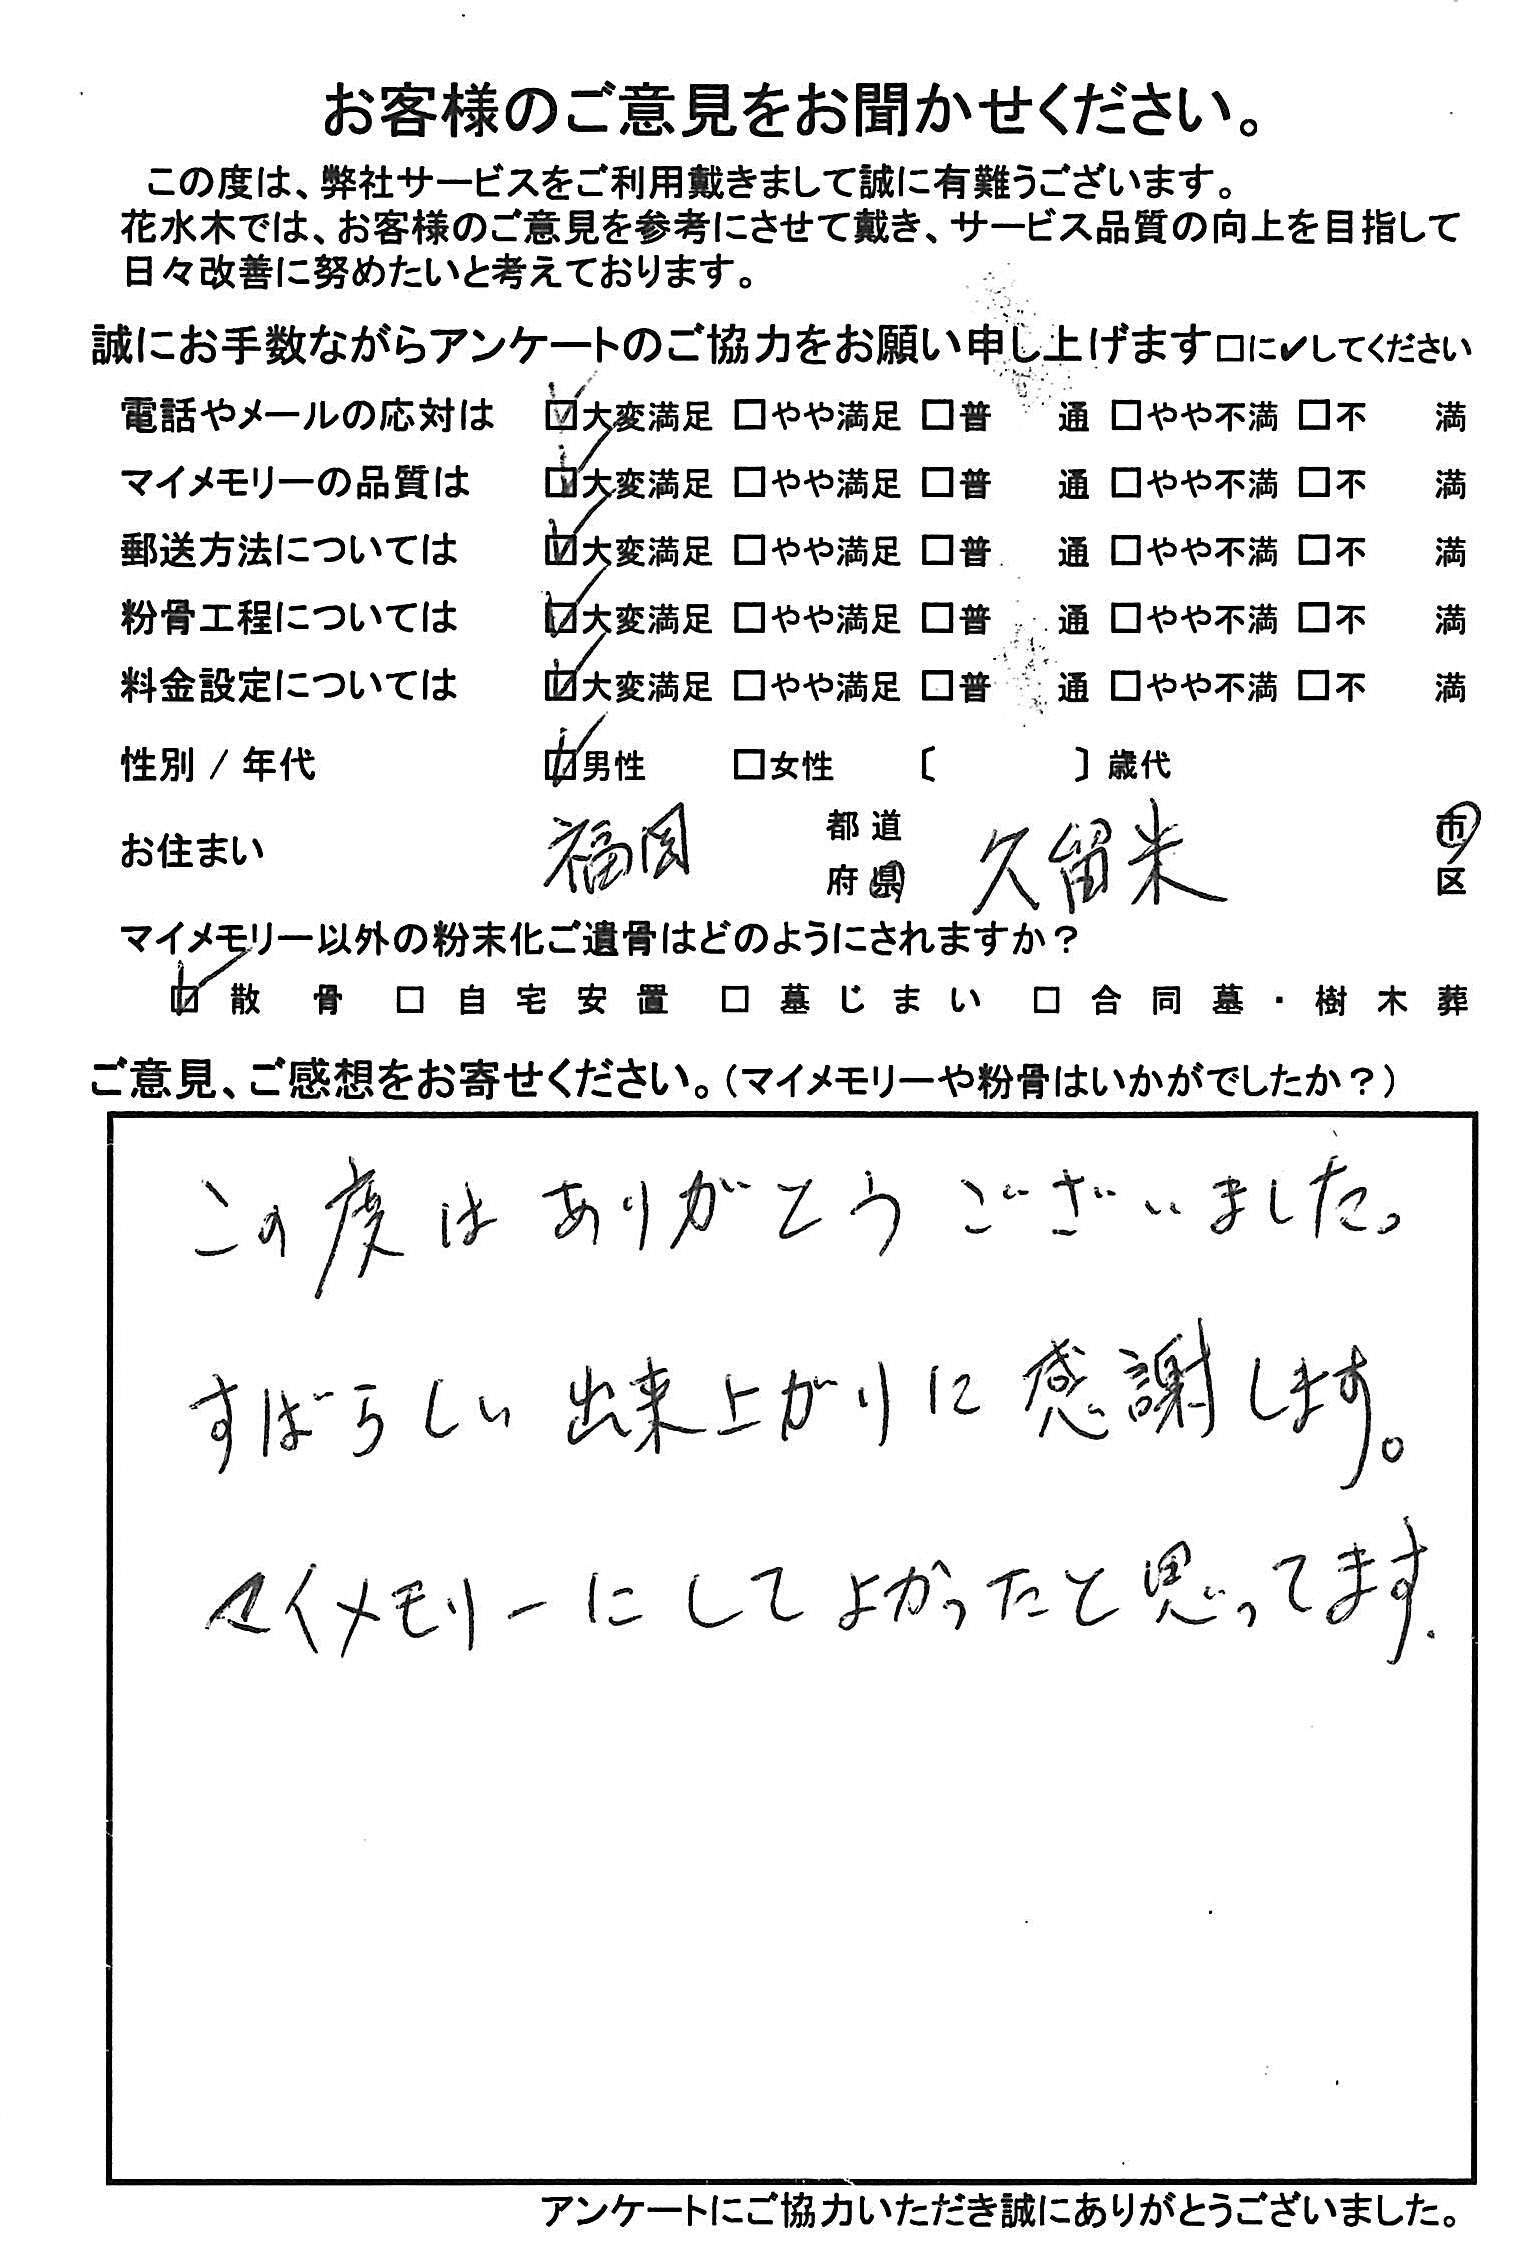 お客様のご意見をお聞かせください。
この度は、弊社サービスをご利用戴きまして誠に有難うございます。
花水木では、お客様のご意見を参考にさせて戴き、サービス品質の向上を目指して
日々改善に努めたいと考えております。
誠にお手数ながらアンケートのご協力をお願い申し上げます□に✔してください
電話やメールの応対は ☑大変満足 □やや満足 □普 通 □やや不満 □不 満
マイメモリーの品質は ☑大変満足 □やや満足 □普 通 □やや不満 □不 満
郵送方法については ☑大変満足 □やや満足 □普 通 □やや不満 □不 満
粉骨工程については ☑大変満足 □やや満足 □普 通 □やや不満 □不 満
料金設定については ☑大変満足 □やや満足 □普 通 □やや不満 □不 満
性別 / 年代 ☑男性 □女性 〔 〕歳代
お住まい 福岡 都道府県 久留米 市区
マイメモリー以外の粉末化ご遺骨はどのようにされますか？
☑ 散骨 □ 自宅安置 □ 墓じまい □ 合同墓・樹木葬
ご意見、ご感想をお寄せください。（マイメモリーや粉骨はいかがでしたか？）
この度はありがとうございました。
すばらしい出来上がりに感謝します。
マイメモリーにしてよかったと思ってます.
アンケートにご協力いただき誠にありがとうございました。